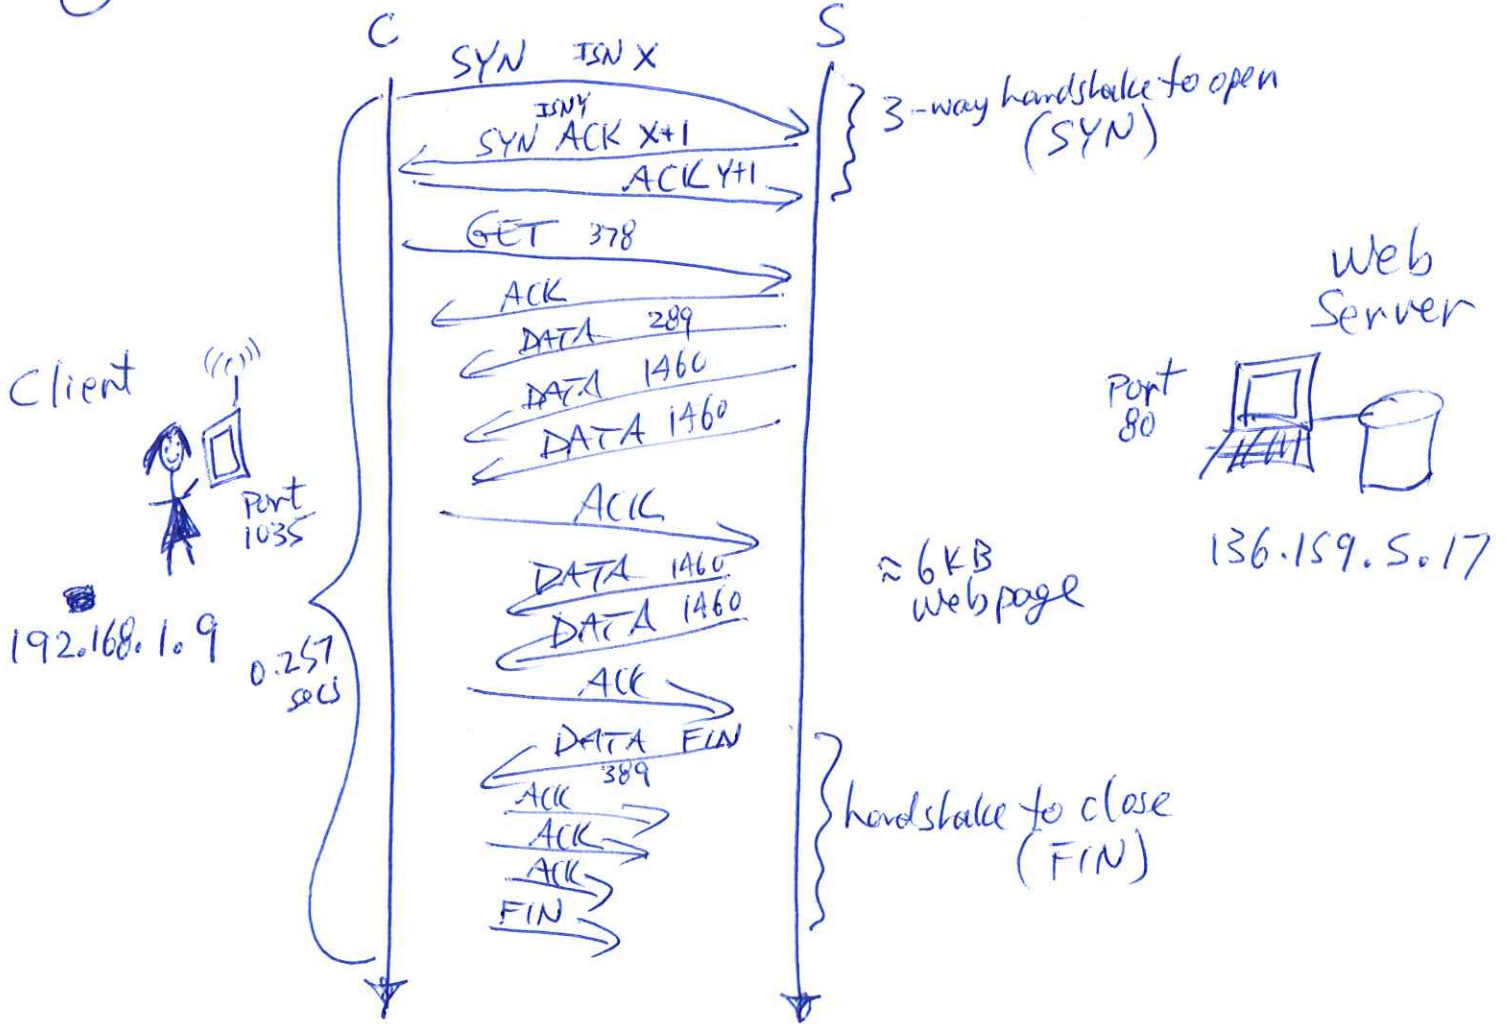 C
S
SYN ISN X
ISNY
SYN ACK X+1
ACK Y+1
3-way handshake to open
(SYN)
GET 378
ACK
DATA 289
DATA 1460
DATA 1460
ACK
DATA 1460
DATA 1460
ACK
DATA FIN
389
ACK
ACK
ACK
FIN
handshake to close
(FIN)
Client
Port
1035
192.168.1.9
0.257
secs
≈ 6KB
webpage
Web
Server
Port
80
136.159.5.17